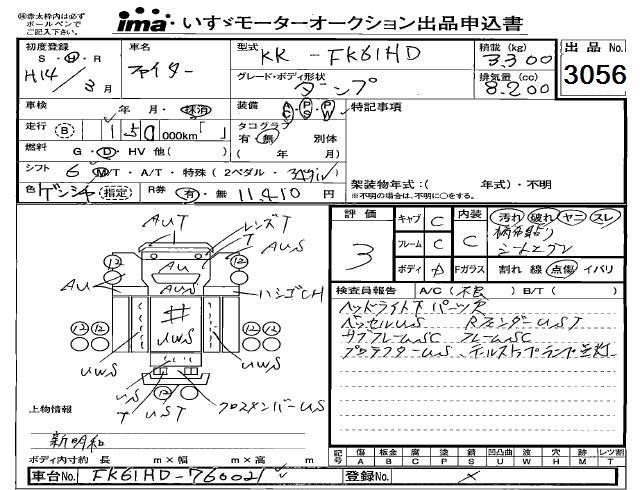 ※赤太枠内は必ずボールペンでご記入下さい。
ima いすゞモーターオークション出品申込書
初度登録 S・H・R H14/3月
車名 ファイター
型式 KK-FK61HD
積載(kg) 3300
グレード・ボディ形状 ダンプ
排気量(cc) 8.200
出品No. 3056
車検 年 月・抹消
装備 AC PS PW
特記事項
走行 B 150,000km
タコグラフ 有・無 別体 ( 年 月)
燃料 G・D・HV 他( )
シフト 6 M/T・A/T・特殊(2ペダル・
色 ゲンシャ 指定 R券 有・無 11,410円
架装物年式:( 年式)・不明
※不明の場合は、不明に○をする。
評価 3
キャブ C 内装 C 汚れ 破れ ヤニ スレ
フレーム C
シートエグレ
ボディ A Fガラス 割れ 線 点傷 イバリ
検査員報告 A/C(不良)B/T( )
ヘッドライト下パーツ欠
ベッセルUS RフェンダーUST
サブフレームSC フレームSC
プロテクターUS、テールストップランプ点灯
AUT レンズT
T AUS
12 12
AU AU AUS ハシゴCH
12 12 # 12 12
UWS UWS UWS
US
12 12
T UST クロスメンバーUS
上物情報
新明和
ボディ内寸約 長 m×幅 m×高 m
記号 傷A 板金B 腐C 塗P 錆S 凹凸曲U 波W 穴H 跡M レツ割T
車台No. FK61HD-760021
登録No.